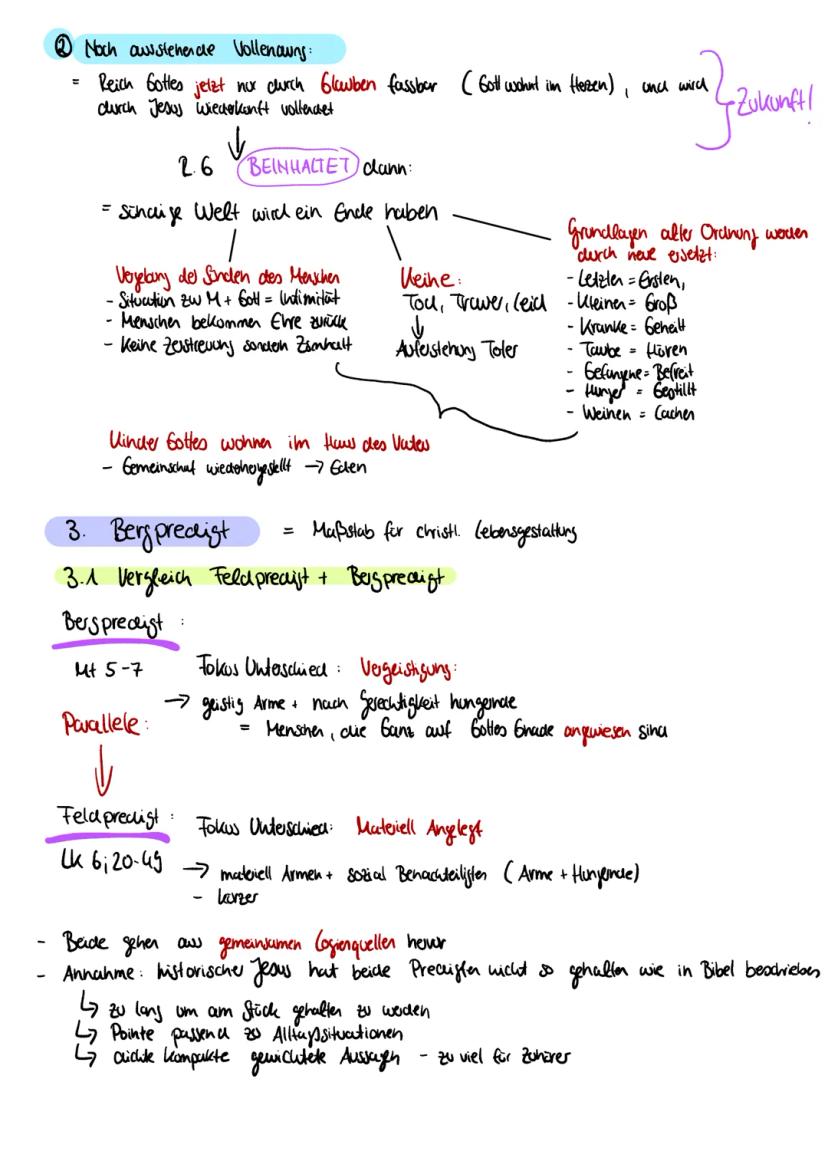 ② Noch ausstehende Vollendung:
= Reich Gottes jetzt nur durch Glauben fassbar (Gott wohnt im Herzen), und wird
durch Jesus Wiederkunft vollendet
Zukunft!
2.6 BEINHALTET dann:
= sündige Welt wird ein Ende haben
Vergebung der Sünden des Menschen
- Situation zw M + Gott = Intimität
- Menschen bekommen Ehre zurück
- Keine Zerstreuung sondern Zsmhalt
Keine:
Tod, Trauer, Leid
↓
Auferstehung Toter
Grundlagen alter Ordnung werden
durch neue ersetzt:
- Letzten = Ersten,
- Kleinen = Groß
- Kranke = Geheilt
- Taube = Hören
- Gefangene = Befreit
- Hunger = Gestillt
- Weinen = Lachen
Kinder Gottes wohnen im Haus des Vaters
- Gemeinschaft wiederhergestellt → Eden
3. Bergpredigt = Maßstab für christl. Lebensgestaltung
3.1 Vergleich Feldpredigt + Bergpredigt
Bergpredigt:
Mt 5-7 Fokus Unterschied: Vergeistigung:
→ geistig Arme + nach Gerechtigkeit hungernde
= Menschen, die Ganz auf Gottes Gnade angewiesen sind
Parallele:
Feldpredigt: Fokus Unterschied: Materiell Angelegt
Lk 6; 20-49 → materiell Armen + sozial Benachteiligten (Arme + Hungernde)
- kürzer
- Beide gehen aus gemeinsamen Logienquellen hervor
- Annahme: historischer Jesus hat beide Predigten nicht so gehalten wie in Bibel beschrieben
↳ zu lang um am Stück gehalten zu werden
↳ Pointe passend zu Alltagssituationen
↳ dichte kompakte gewichtete Aussagen - zu viel für Zuhörer